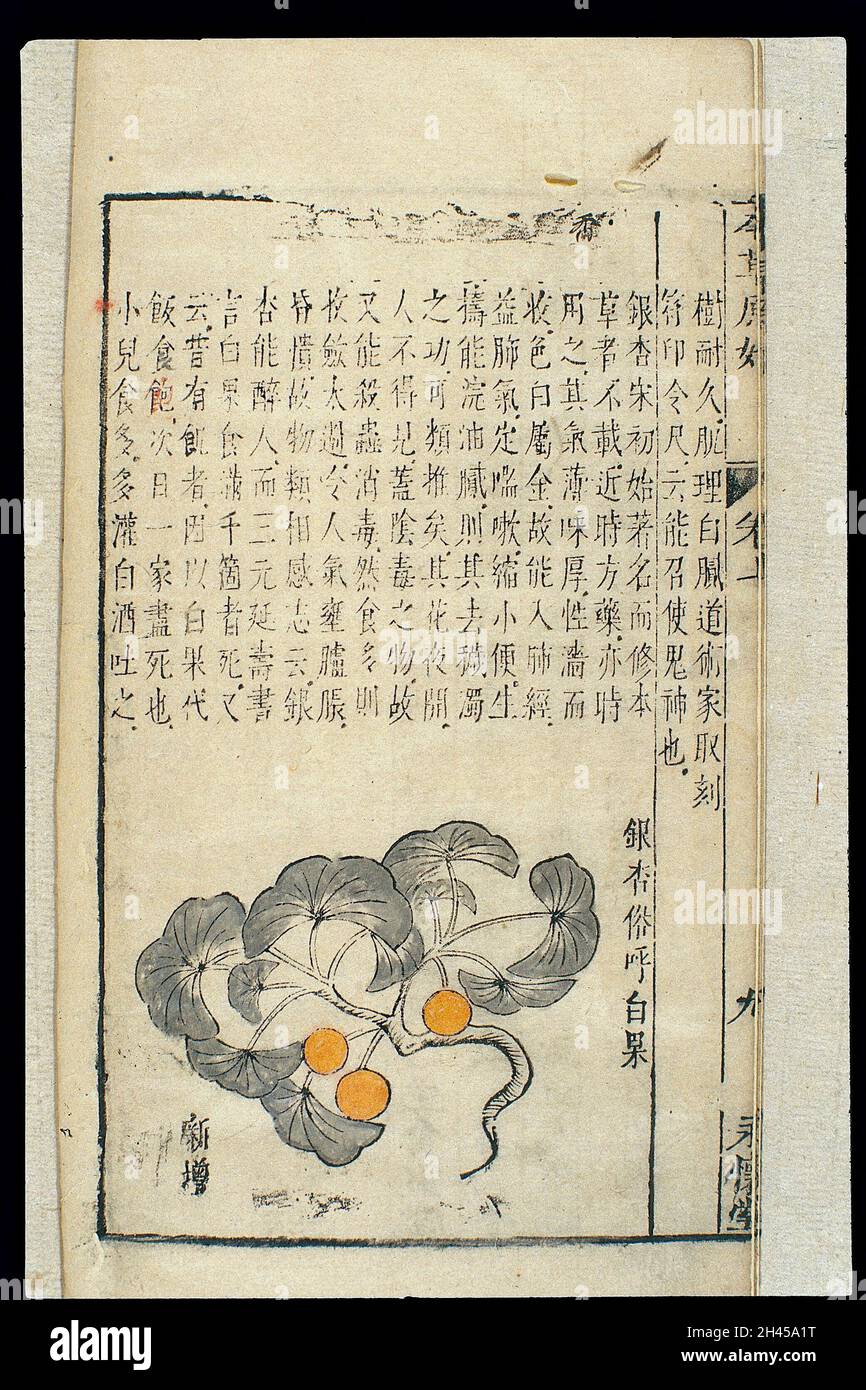 本草原始
卷七
九
永懷堂
樹耐久肌理白膩道術家取刻
符印令尺云能召使鬼神也
銀杏宋初始著名而修本
草者不載近時方藥亦時
用之其氣薄味厚性濇而
收色白屬金故能入肺經
益肺氣定喘嗽縮小便生
擣能浣油膩則其去穢濁
之功可類推矣其花夜開
人不得見蓋陰毒之物故
又能殺蟲消毒然食多則
收斂太過令人氣壅臚脹
昏憒故物類相感志云銀
杏能醉人而三元延壽書
言白果食滿千箇者死又
云昔有飢者因以白果代
飯食飽次日一家盡死也
小兒食多多灌白酒吐之
銀杏俗呼白果
新增
alamy
Image ID: 2H45A1T
www.alamy.com